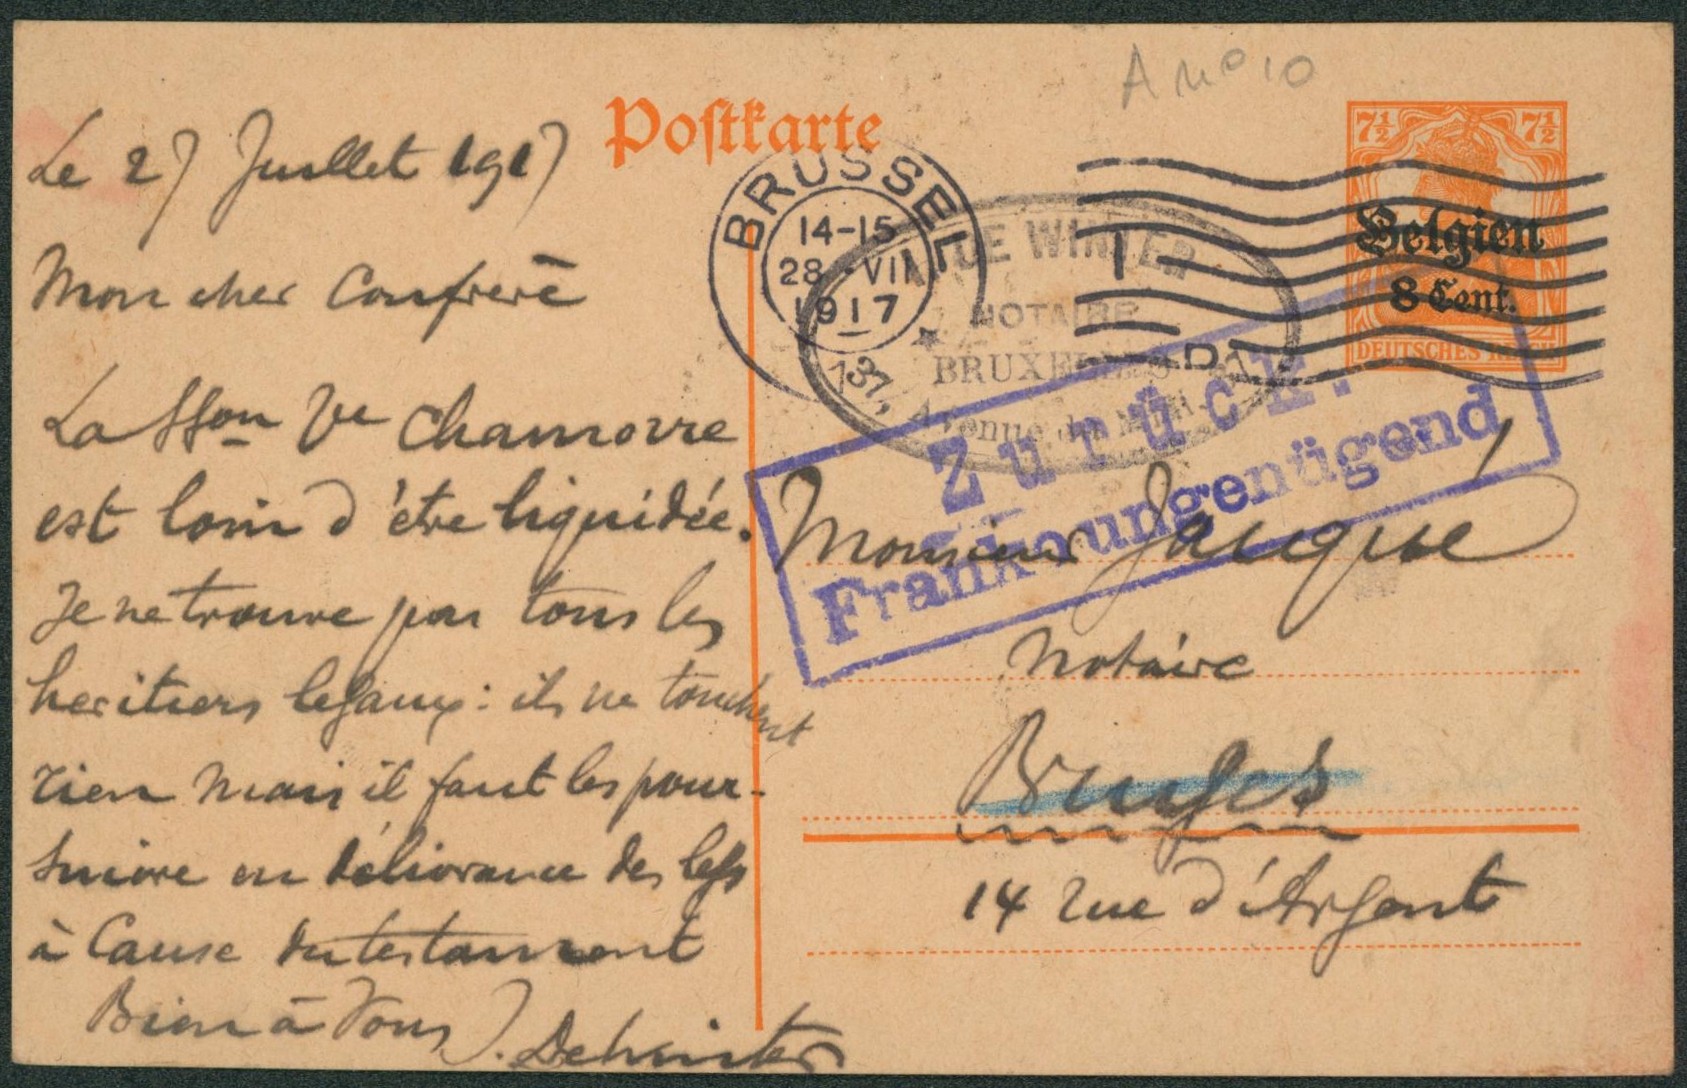 A No 10
Postkarte
7½ 7½
Belgien
8 Cent.
DEUTSCHES REICH
BRUSSEL
14-15
28 VII
1917
1
DE WINTER
NOTAIRE
BRUXELLES
137, Avenue du Midi
Zurück!
Franko ungenügend
Le 27 Juillet 1917
Mon cher Confrère
La SSon Ve Chamorre
est loin d'être liquidée.
Je ne trouve pas tous les
heritiers legaux : ils ne touchent
rien mais il faut les pour-
suivre en délivrance des legs
à Cause du testament
Bien à Vous J. Dewinter
Monsieur Jacque
Notaire
Bruges
14 rue d'Argent